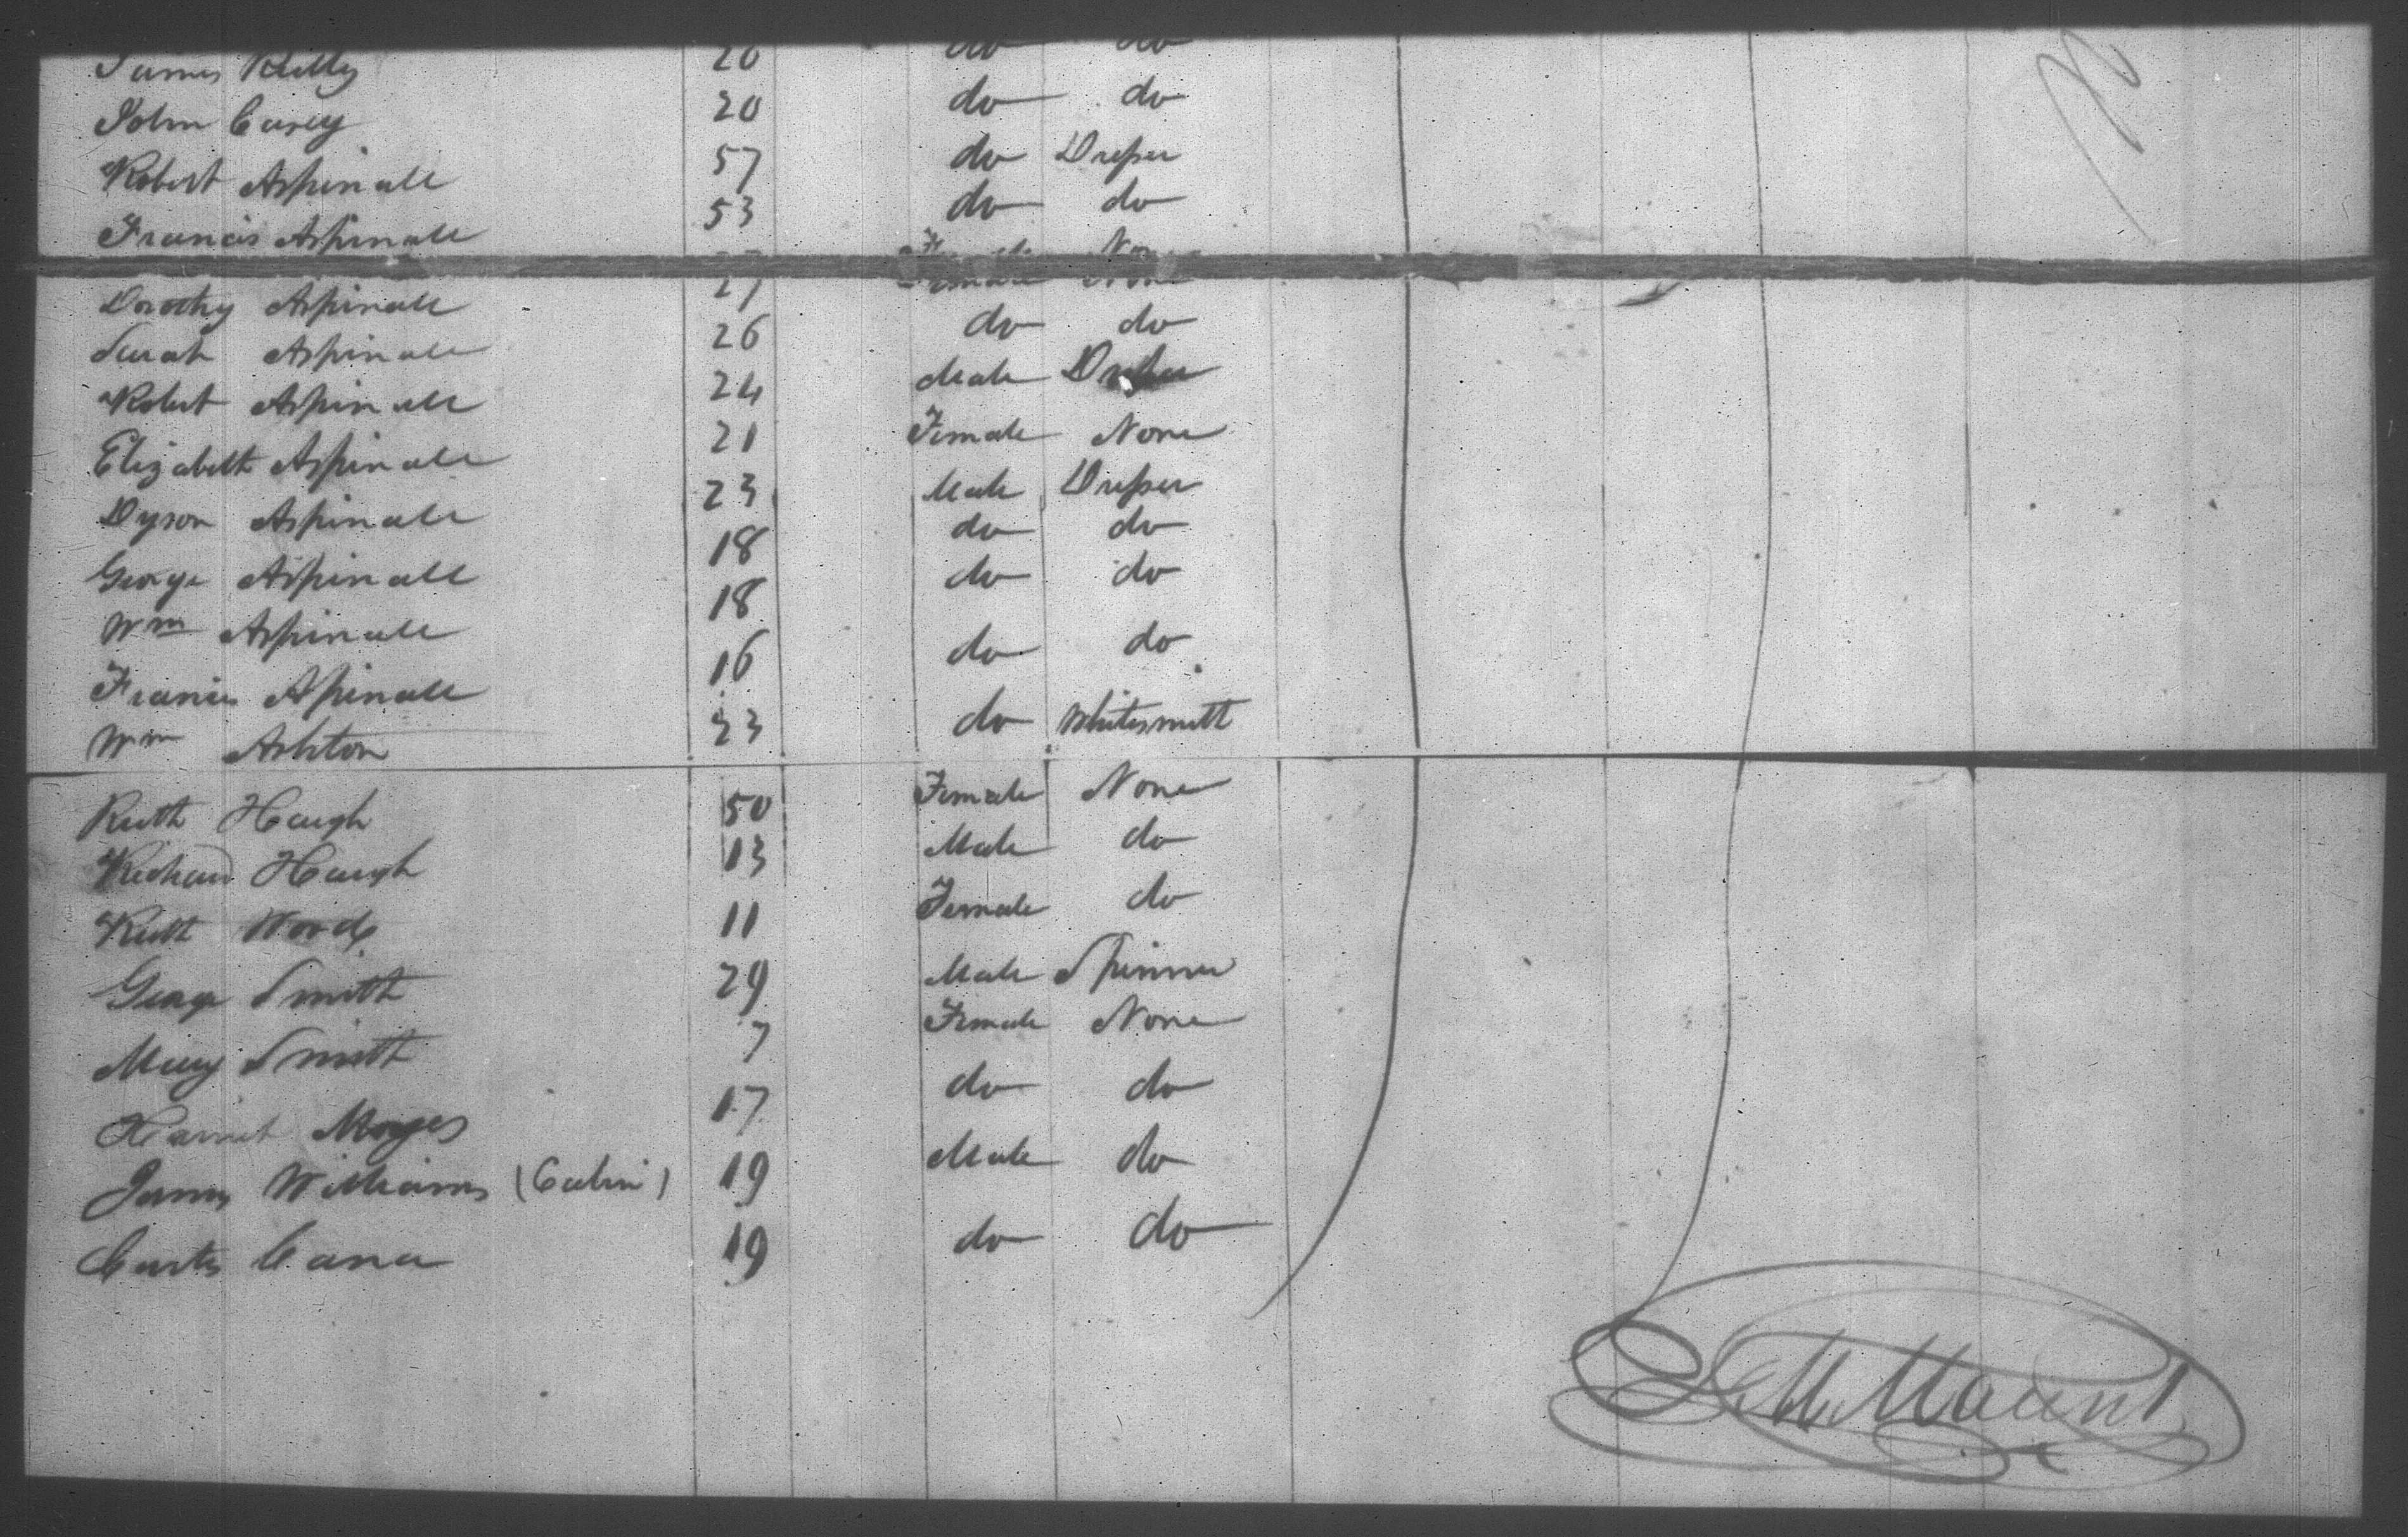 James Reilly 20 do do
John Casey 20 do do
Robert Aspinall 57 do Dresser
Francis Aspinall 53 do do
Dorothy Aspinall 27 Female None
Sarah Aspinall 26 do do
Robert Aspinall 24 Male Dresser
Elizabeth Aspinall 21 Female None
Dyson Aspinall 23 Male Dresser
George Aspinall 18 do do
Wm Aspinall 18 do do
Francis Aspinall 16 do do
Wm Ashton 23 do Whitesmith
Ruth Haugh 50 Female None
Richard Haugh 13 Male do
Ruth Wood 11 Female do
George Smith 29 Male Spinner
Mary Smith 7 Female None
Harriet Moyes 17 do do
James Williams (Cabin) 19 Male do
Curtis 19 do do